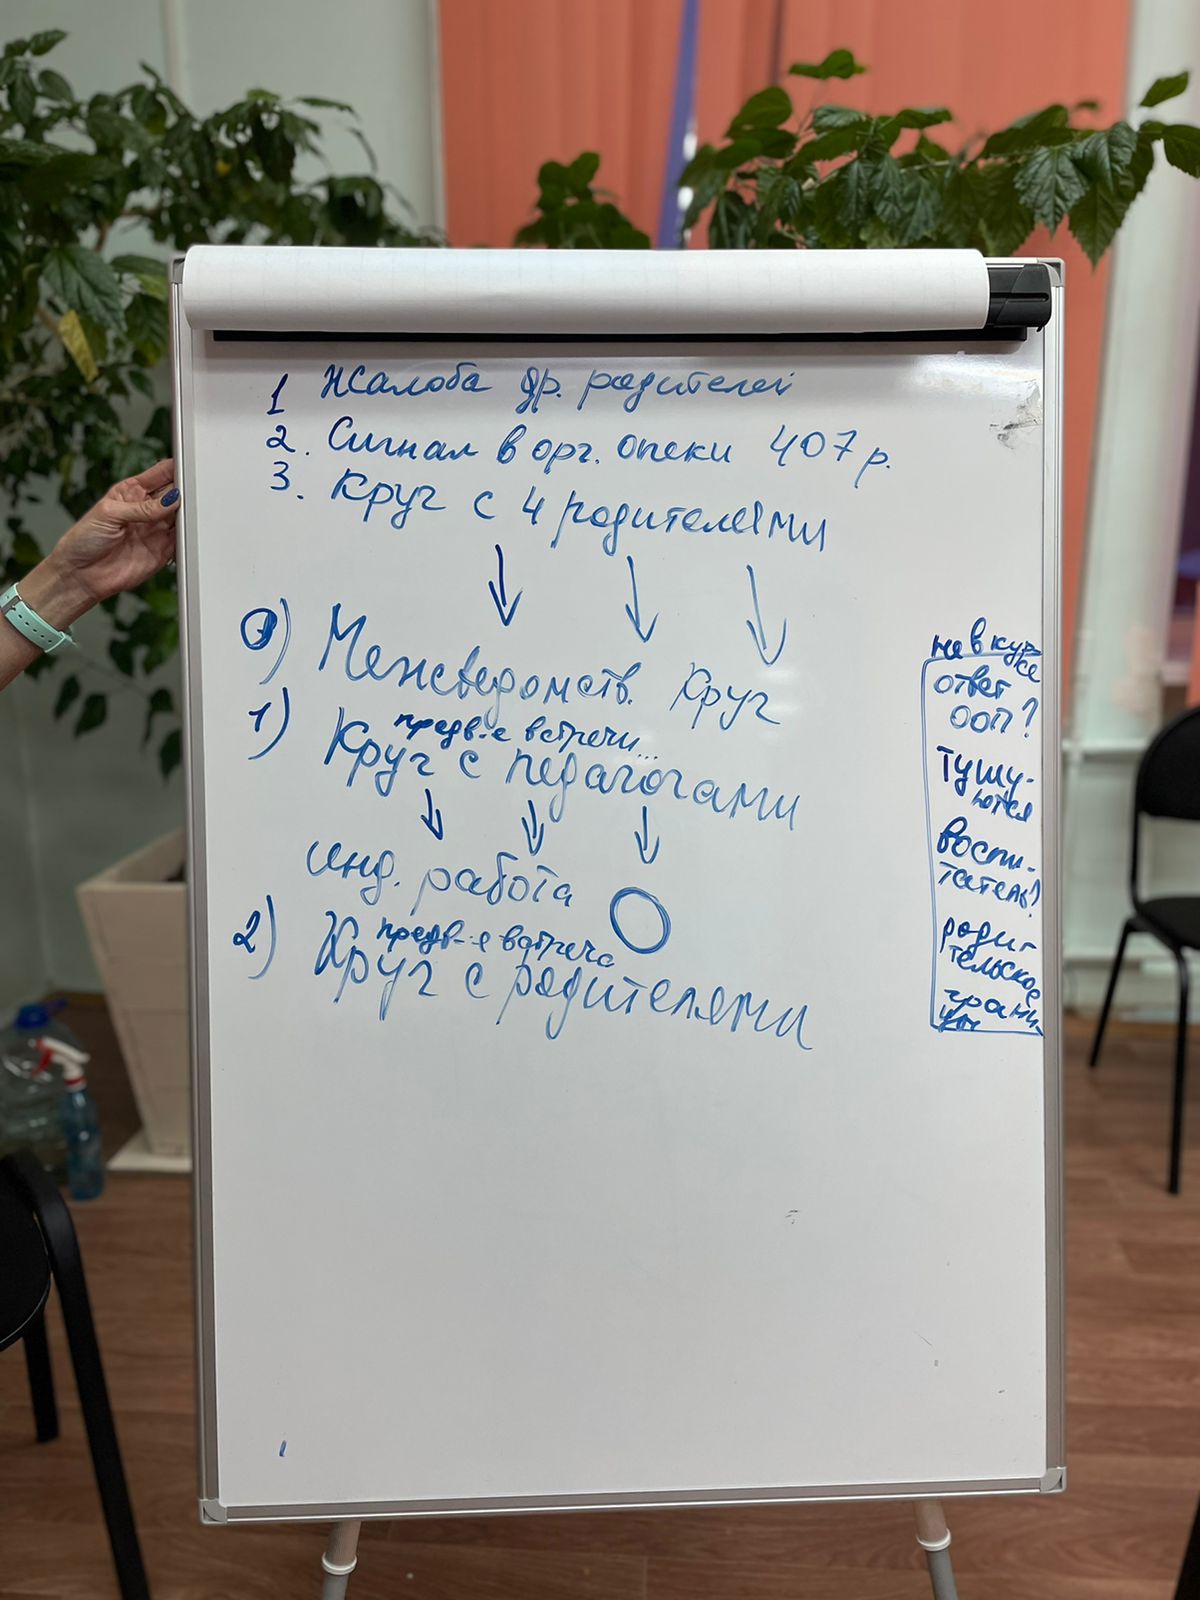 1 Жалоба др. родителей
2. Сигнал в орг. опеки 407 р.
3. Круг с 4 родителями
0) Межведомств. Круг
предв-е встречи...
1) Круг с педагогами
инд. работа
предв-е встреча
2) Круг с родителями
не в кур-
се
ответ
ООП?
тушу-
ются
воспи-
татель?
роди-
тельское
грани-
цы